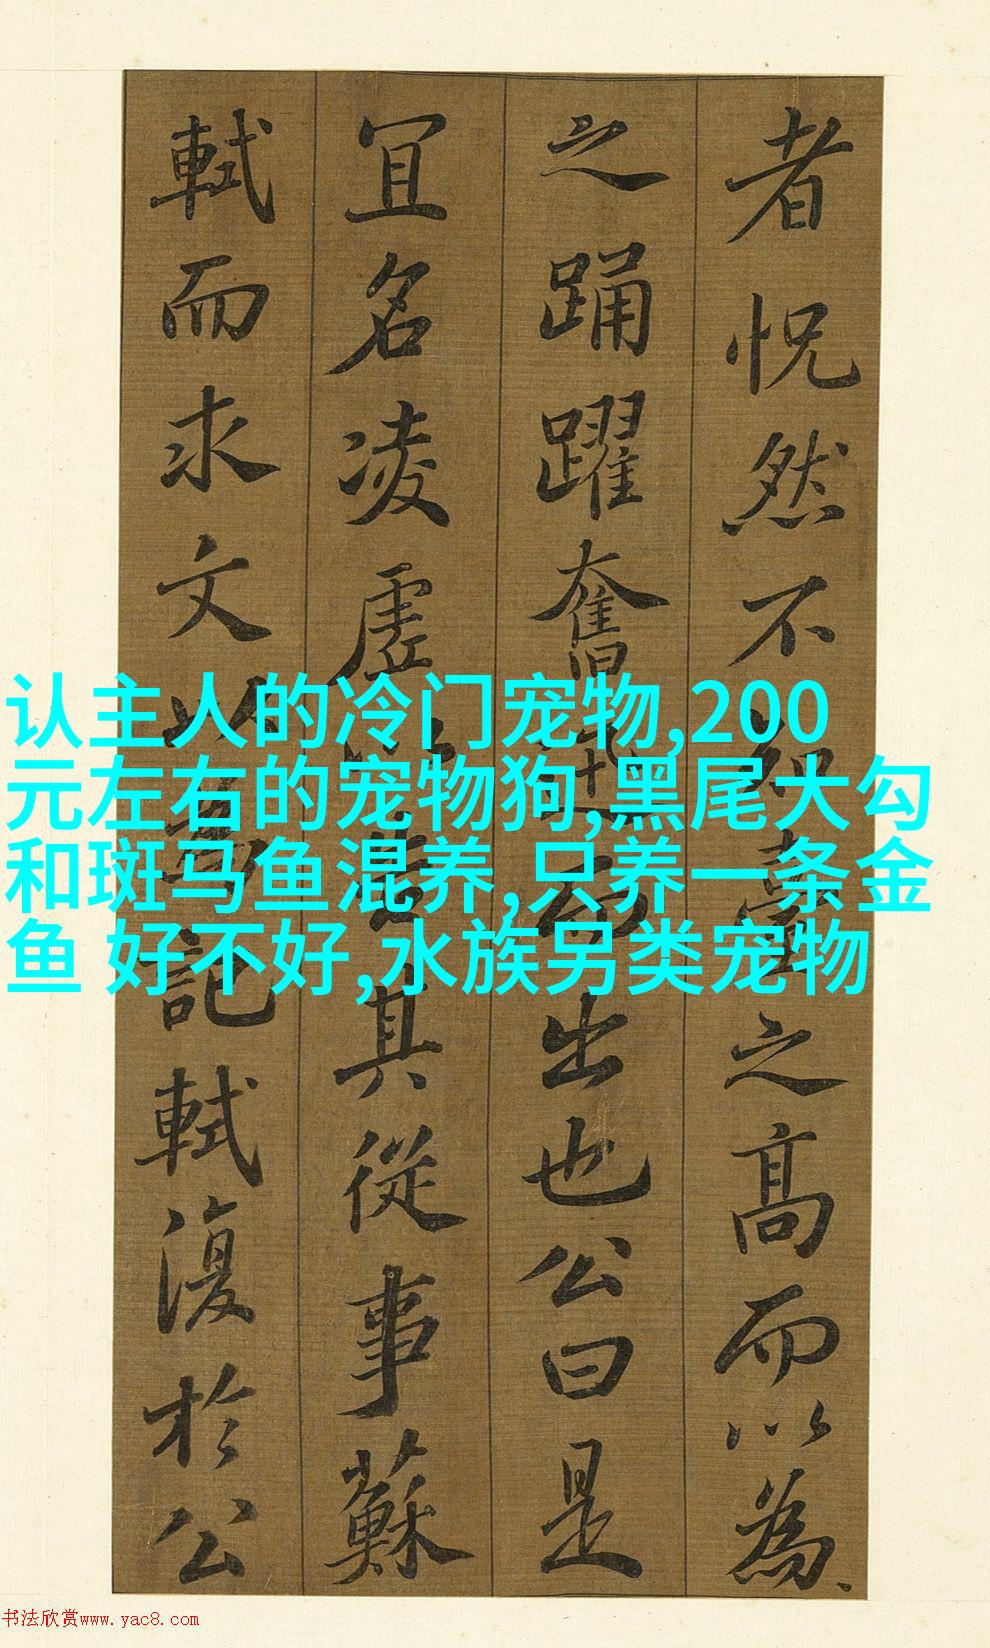 者怳然不知臺之高而以為
之踊躍奮迅而出也公曰是
冝名凌虛以告其從事蘇
軾而求文以為記軾復於公
认主人的冷门宠物,200
元左右的宠物狗,黑尾大勾
和斑马鱼混养,只养一条金
鱼 好不好,水族另类宠物
书法欣赏www.yac8.com